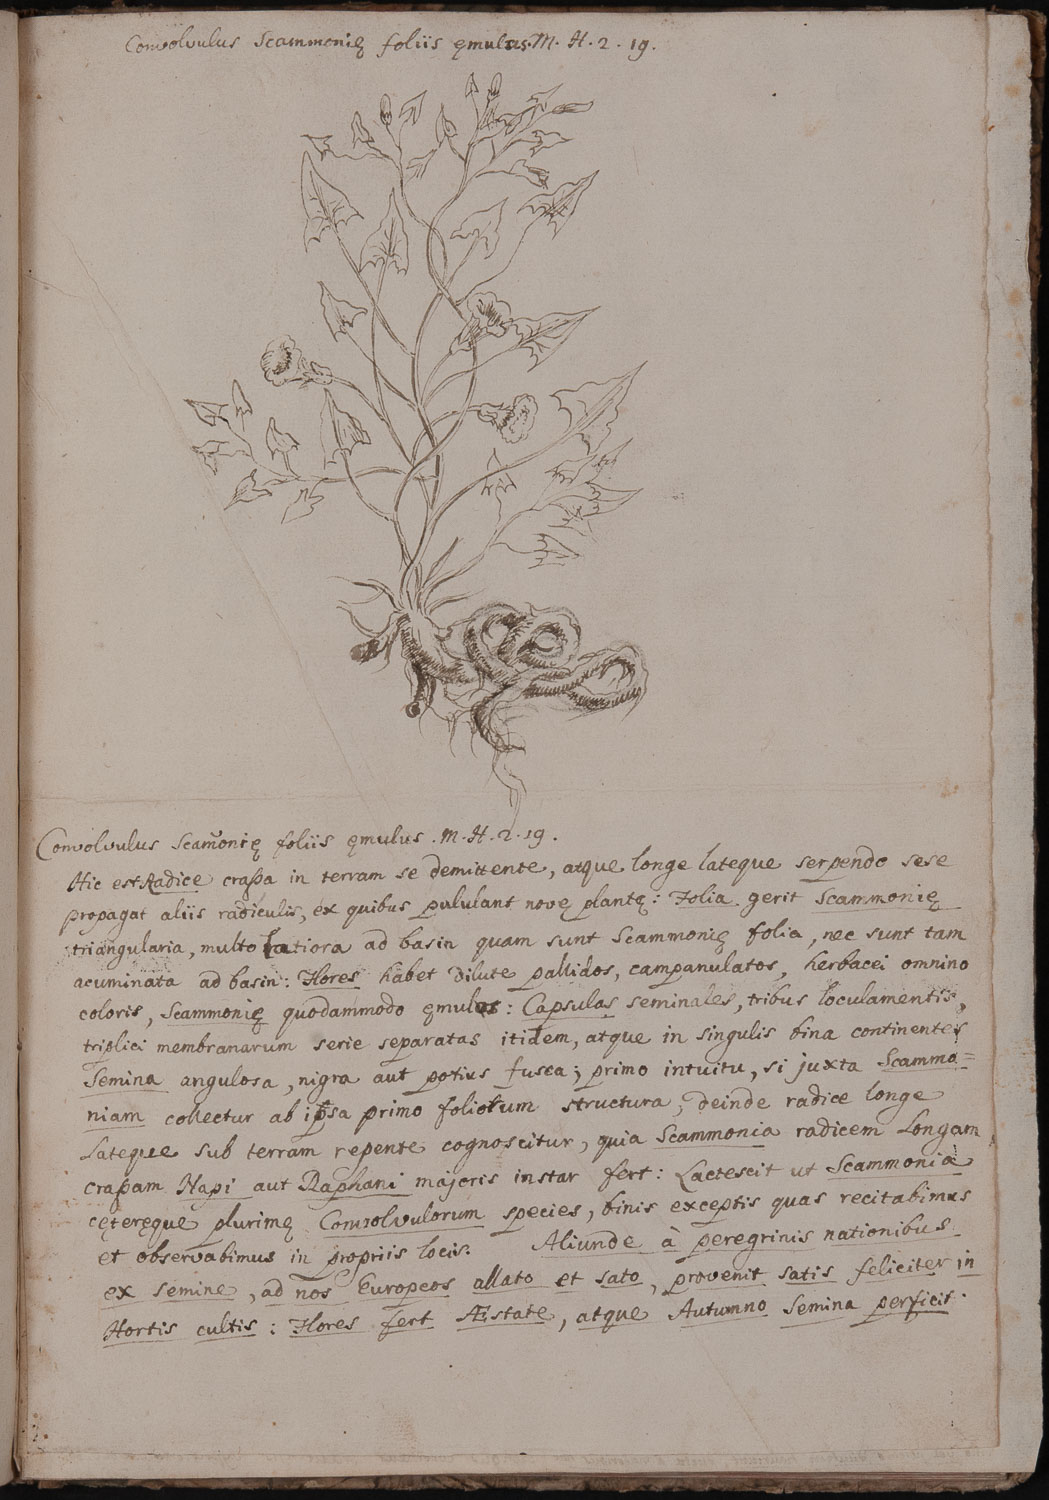 Convolvulus Scammonię foliis ęmulus. M. H. 2. 19.
Convolvulus Scam̄onię foliis ęmulus. M. H. 2. 19.
Hic est Radice craſsa in terram se demittente, atque longe lateque serpendo sese
propagat aliis radiculis, ex quibus pululant novę plantę: Folia gerit Scammonię
triangularia, multo latiora ad basin quam sunt Scammonię folia, nec sunt tam
acuminata ad basin: Flores habet dilute pallidos, campanulatos, herbacei omnino
coloris, Scammonię quodammodo ęmulos: Capsulas seminales, tribus loculamentis,
triplici membranarum serie separatas itidem, atque in singulis bina continentes
Semina angulosa, nigra aut potius fusca; primo intuitu, si juxta Scammo=
niam collectur ab ipsa primo foliorum structura, deinde radice longe
Lateque sub terram repente cognoscitur, quia Scammonia radicem Longam
craſsam Napi aut Raphani majoris instar fert: Lactescit ut Scammonia
cęteręque plurimę Convolvulorum species, binis exceptis quas recitabimus
et observabimus in propriis locis. Aliunde à peregrinis nationibus
ex semine, ad nos Europeos allato et sato, provenit satis feliciter in
Hortis cultis: Flores fert Æstate, atque Autumno Semina perficit.